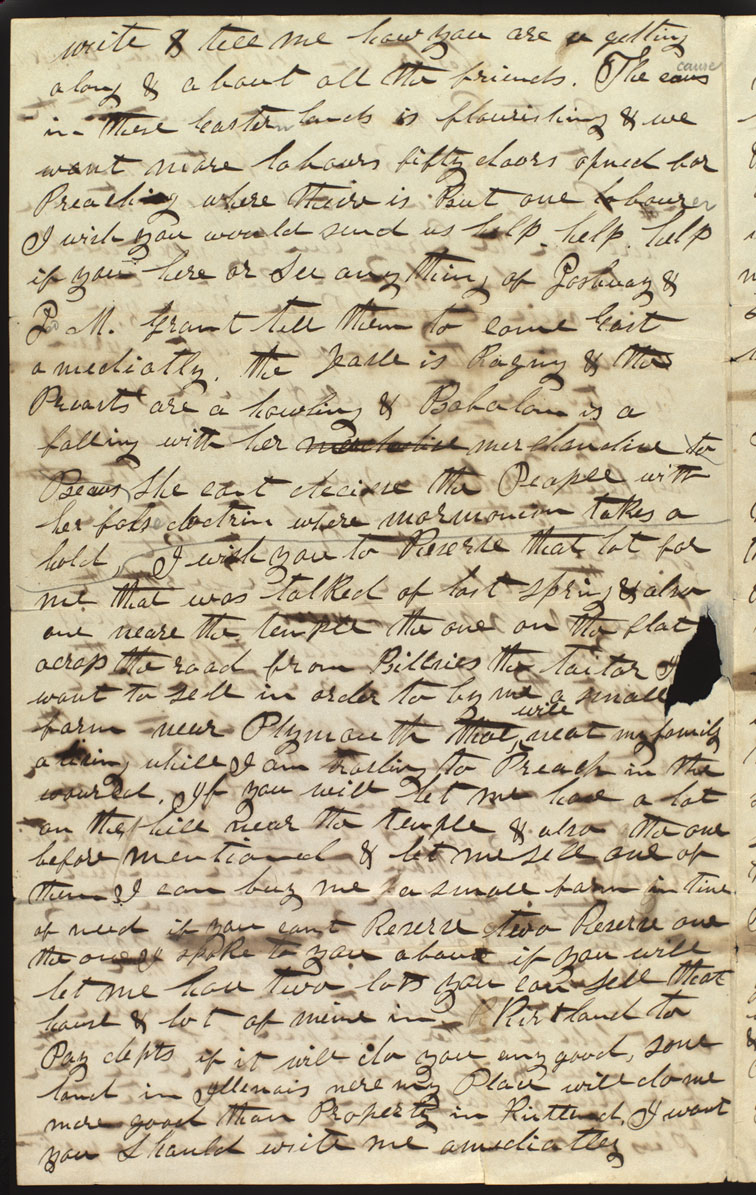 write & tell me how you are a getting
along & about all the friends. The caus cause
in these Eastern lands is flourishing & we
want more labours fifty doors opned for
Preaching where thire is But one labourer
I wish you would send us help. help. help
if you here or See any thing of Joshuay &
J M. Grant tell them to come East
amediatly. the Jasse is Raginy & the
Preasts are a howling & Babalon is a
falling with her merchandise to
Pieaus She cant decive the Peaple with
her fals doctrin where mormonism takes a
hold, I wish you to Reserve that lot for
me that was talked of last spring & also
one neare the temple the one on the flat
across the road from Billsies the tailor I
want to sell in order to by me a small
farm near Plymouth that, will neat my family
a living while I am traviling to Preach in the
wourld. If you will let me have a lot
on the hill near the temple & also the one
before mentioned & let me sell one of
them I can buy me a small farm in time
of need if you cant Reserve two Reserve one
the one I spoke to you about if you will
let me have two lots you can sell that
house & lot of mine in Kirtland to
Pay depts if it will do you eny good, some
land in Illenais nere my Place will do me
more good than Property in Kirtland. I want
you Should write me amediatley